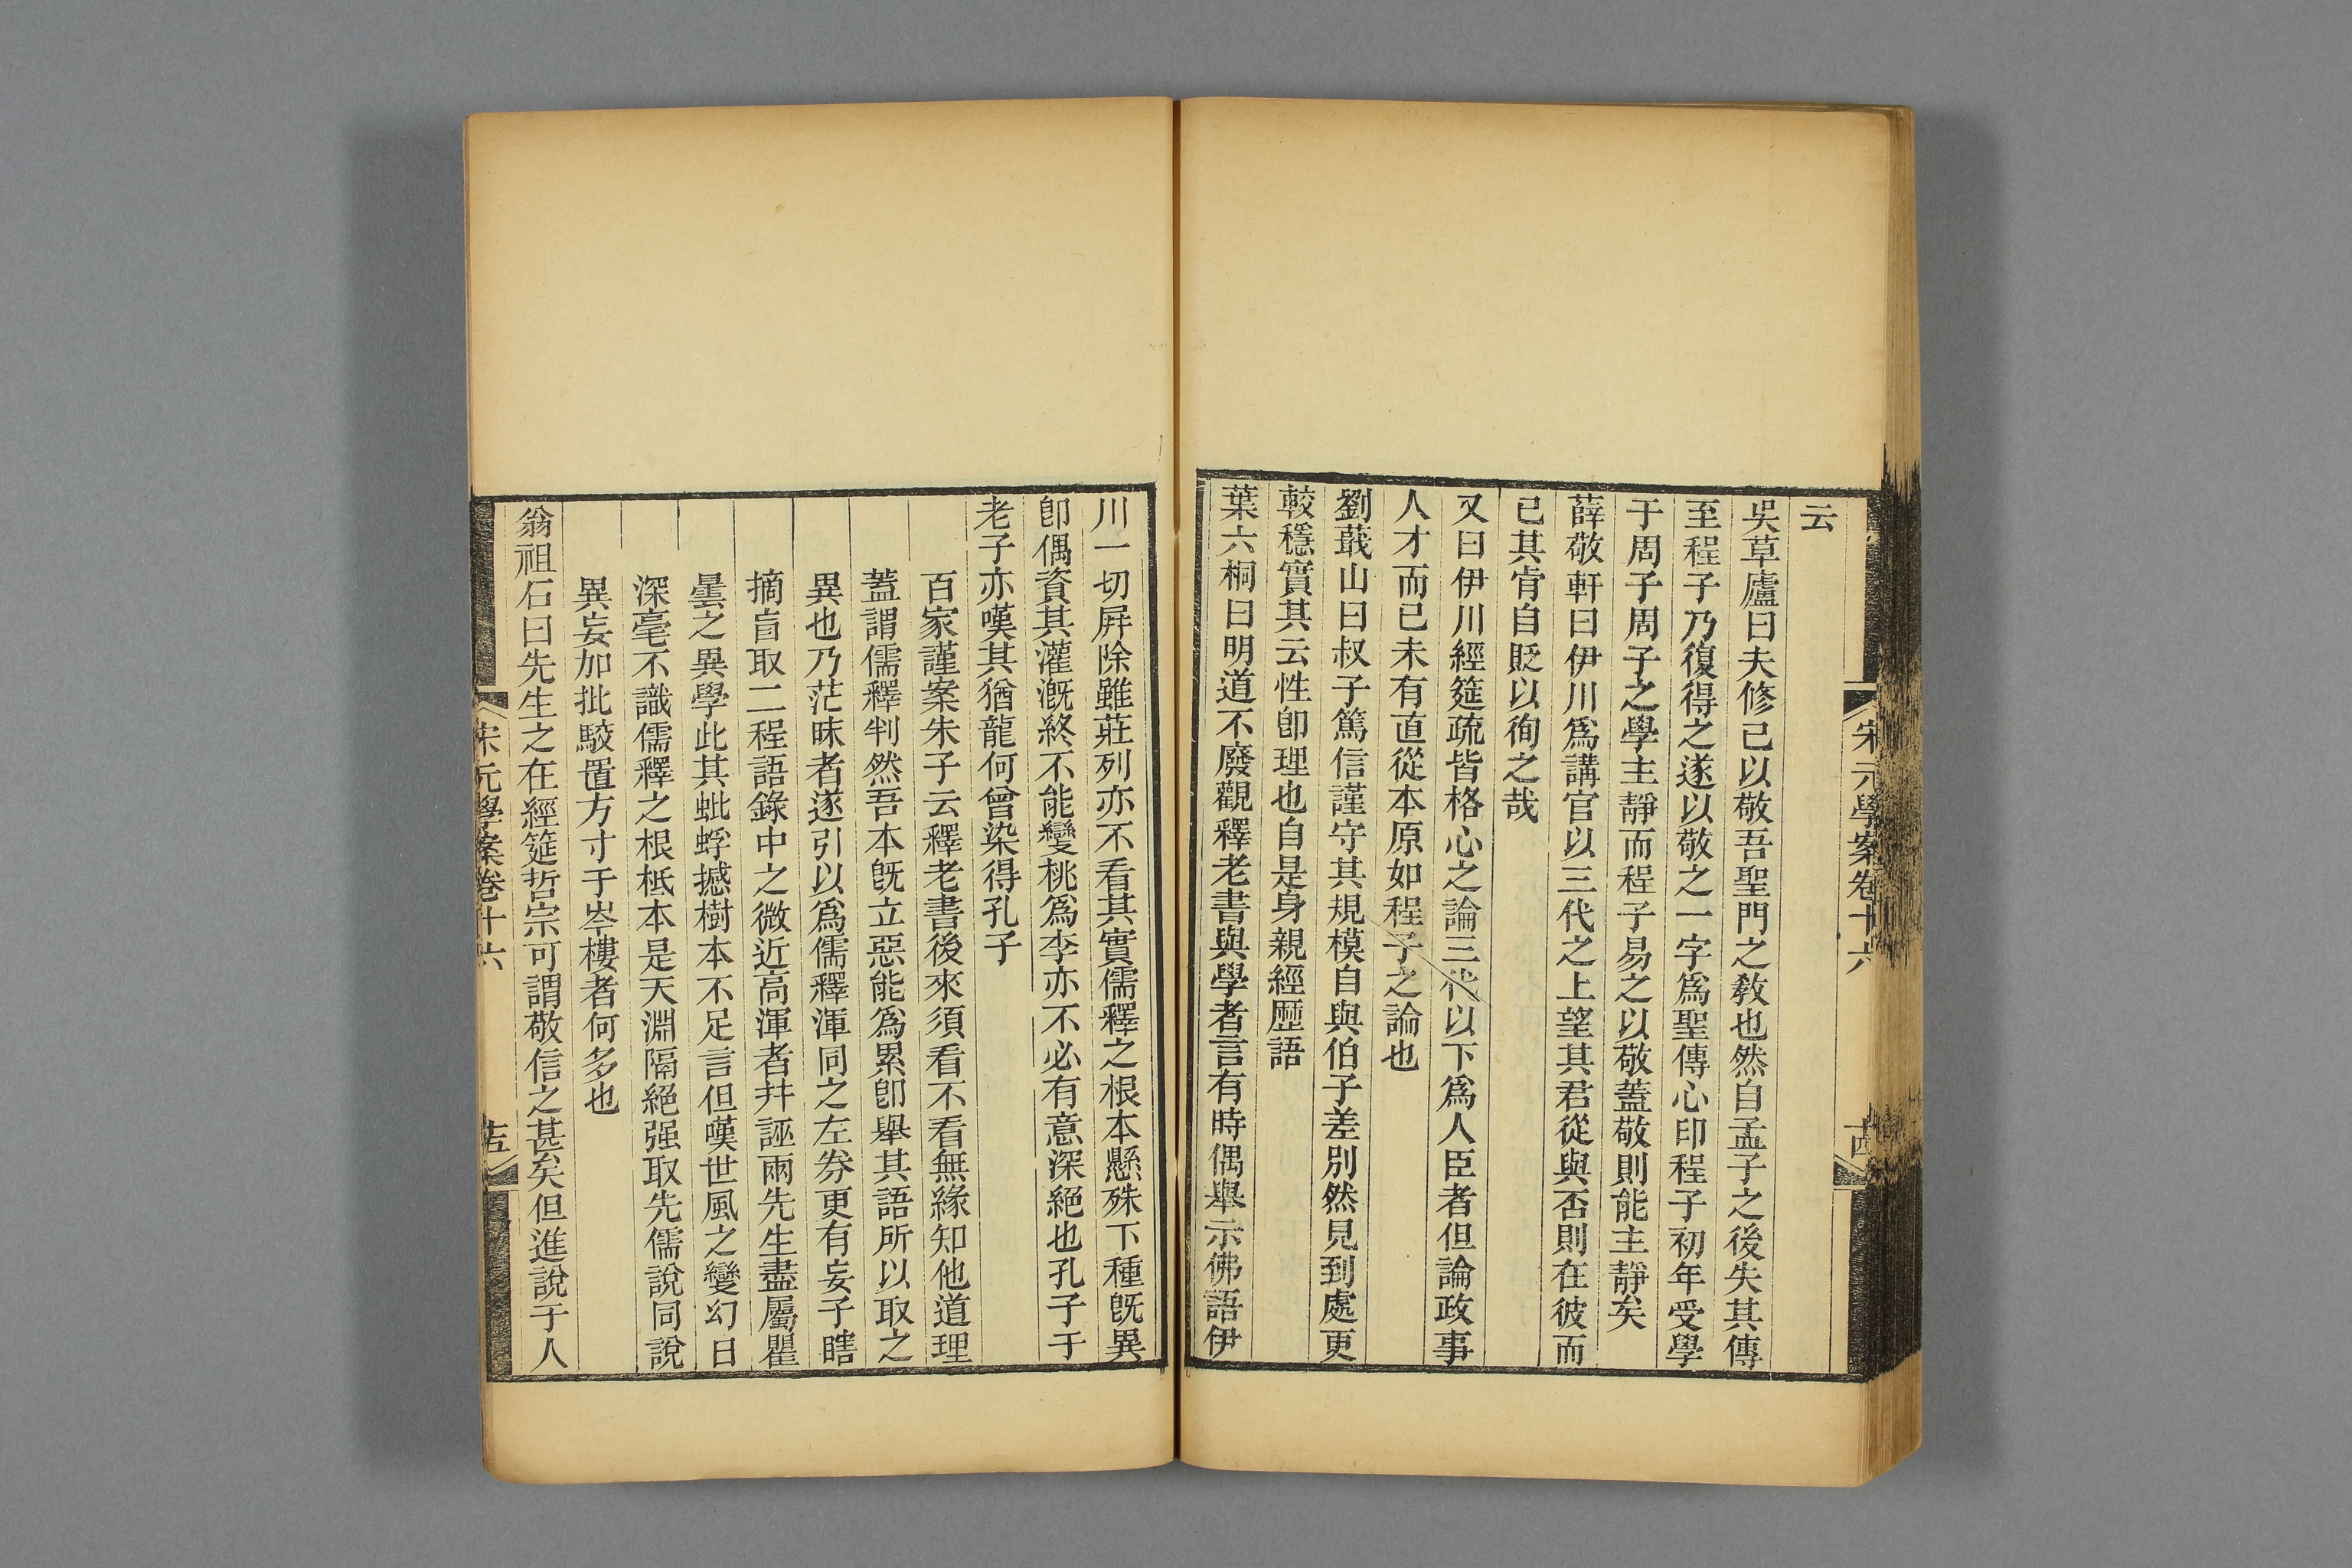 宋元學案卷十六
十四
云
吳草廬曰夫修己以敬吾聖門之敎也然自孟子之後失其傳
至程子乃復得之遂以敬之一字爲聖傳心印程子初年受學
于周子周子之學主靜而程子易之以敬蓋敬則能主靜矣
薛敬軒曰伊川爲講官以三代之上望其君從與否則在彼而
已其肯自貶以徇之哉
又曰伊川經筵疏皆格心之論三代以下爲人臣者但論政事
人才而已未有直從本原如程子之論也
劉蕺山曰叔子篤信謹守其規模自與伯子差別然見到處更
較穩實其云性卽理也自是身親經歷語
葉六桐曰明道不廢觀釋老書與學者言有時偶舉示佛語伊
川一切屏除雖莊列亦不看其實儒釋之根本懸殊下種旣異
卽偶資其灌漑終不能變桃爲李亦不必有意深絕也孔子于
老子亦嘆其猶龍何曾染得孔子
百家謹案朱子云釋老書後來須看不看無緣知他道理
蓋謂儒釋判然吾本旣立惡能爲累卽舉其語所以取之
異也乃茫昧者遂引以爲儒釋渾同之左劵更有妄子瞎
摘盲取二程語錄中之微近高渾者幷誣兩先生盡屬瞿
曇之異學此其蚍蜉撼樹本不足言但嘆世風之變幻日
深毫不識儒釋之根柢本是天淵隔絕强取先儒說同說
異妄加批駮置方寸于岑樓者何多也
翁祖石曰先生之在經筵哲宗可謂敬信之甚矣但進說于人
宋元學案卷十六
十五